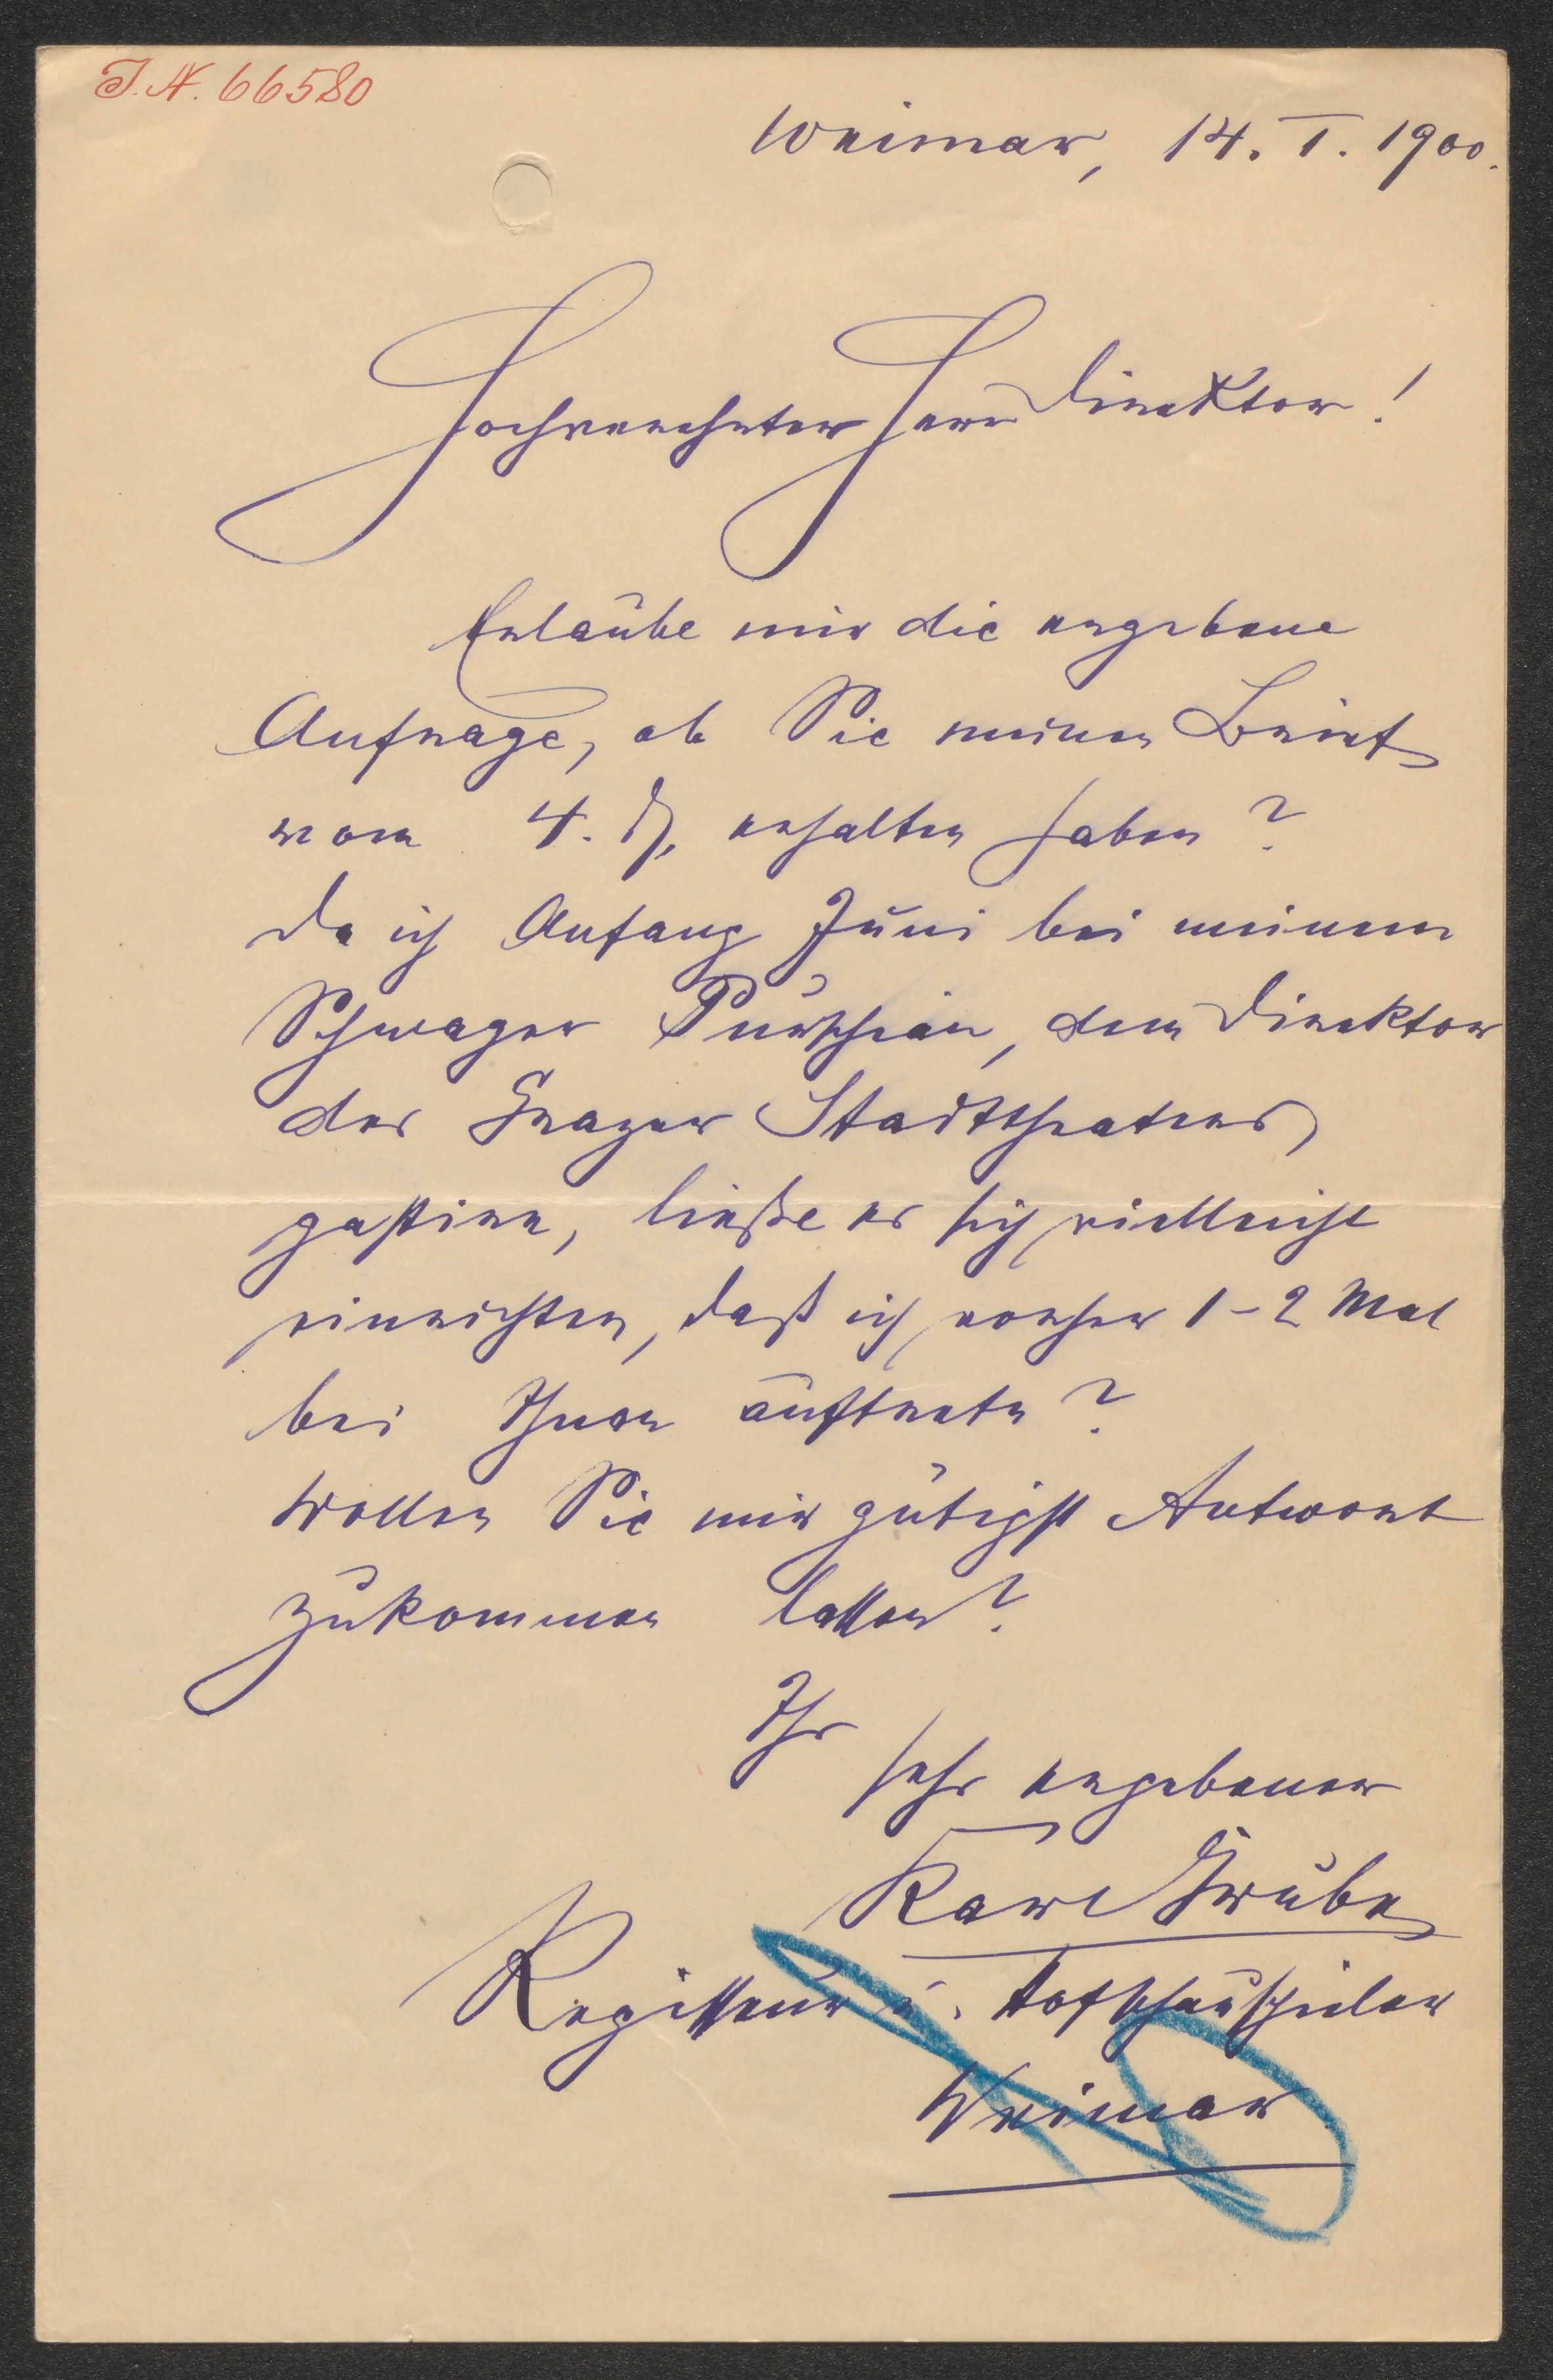 I.N. 66580
Weimar, 14. I. 1900.
Hochverehrter Herr Direktor!
Erlaube mir die ergebene
Anfrage, ob Sie meinen Brief
vom 4. d. erhalten haben?
Da ich Anfang Juni bei meinem
Schwager Purschian, dem Direktor
der Grazer Stadttheater,
gastire, ließe es sich vielleicht
einrichten, daß ich vorher 1-2 Mal
bei Ihnen auftrete?
Wollen Sie mir gütigst Antwort
zukommen lassen?
Ihr
sehr ergebener
Karl Grube
Regisseur u. Hofschauspieler
Weimar